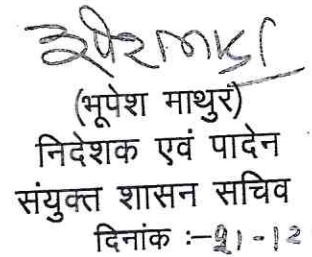 (भूपेश माथुर)
निदेशक एवं पादेन
संयुक्त शासन सचिव
दिनांक :-21-12